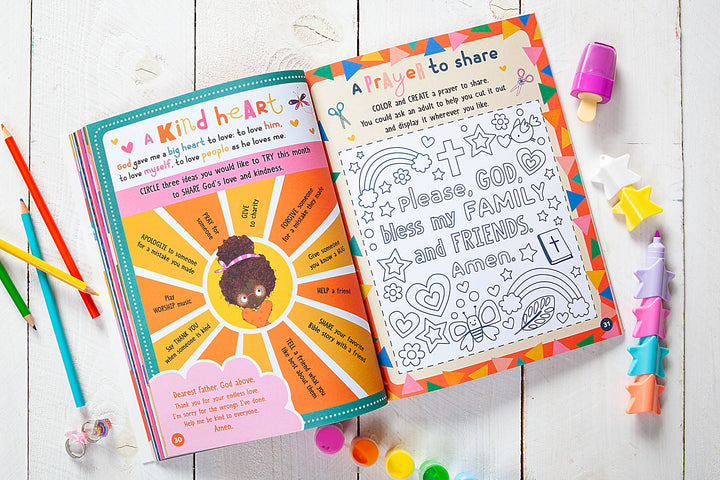 A Kind heArt
God gave me a big heart to love: to love him,
to love myself, to love people as he loves me.
CIRCLE three ideas you would like to TRY this month
to SHARE God's love and kindness.
PRAY for
someone
GIVE
to charity
FORGIVE someone
for a mistake they made
Give someone
you know a HUG
HELP a friend
SHARE your favorite
Bible story with a friend
TELL a friend what you
like best about them
Say THANK YOU
when someone is kind
Play
WORSHIP music
APOLOGIZE to someone
for a mistake you made
Dearest Father, God above,
Thank you for your endless love.
I'm sorry for the wrongs I've done.
Help me be kind to everyone.
Amen.
30
A PrAyeR to share
COLOR and CREATE a prayer to share.
You could ask an adult to help you cut it out
and display it wherever you like.
Please, GOD,
bless my FAMILY
and FRIENDS.
Amen.
31